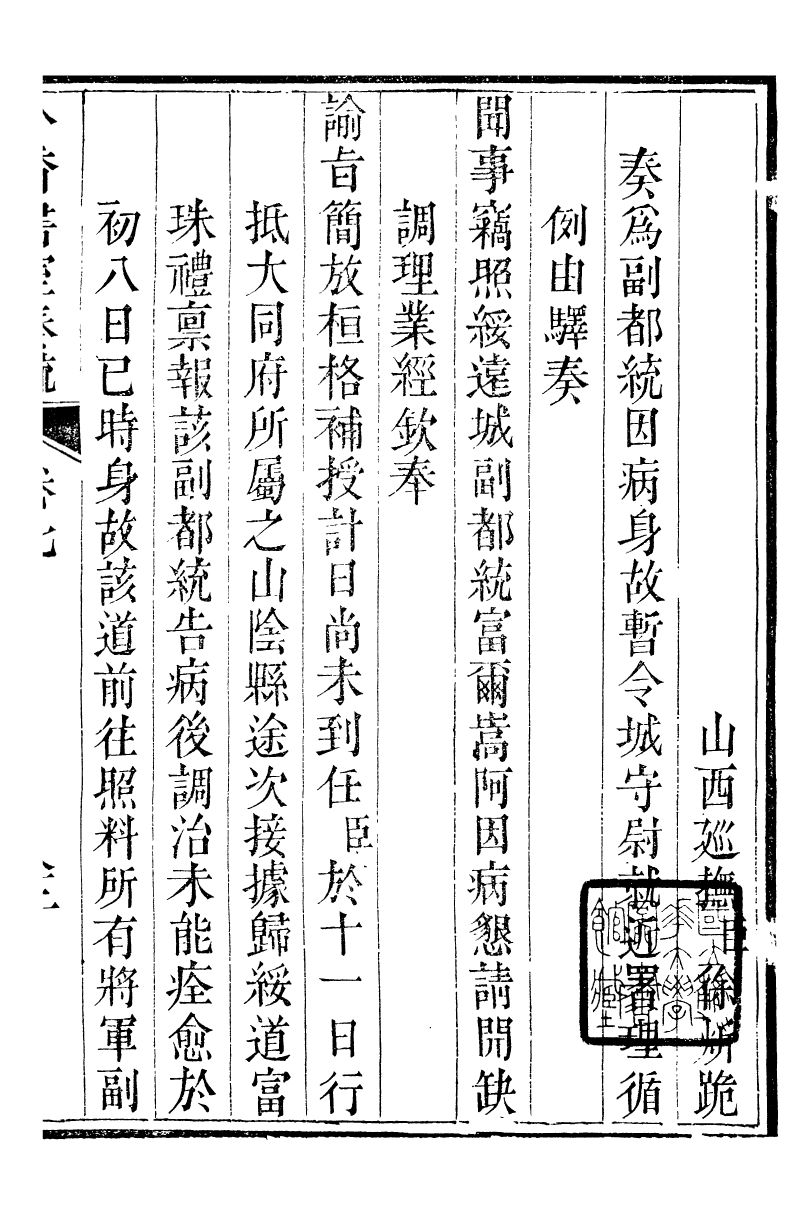 山西廵撫臣徐炘跪
奏爲副都統因病身故暫令城守尉就近署理循
例由驛奏
聞事竊照綏遠城副都統富爾嵩阿因病懇請開缺
調理業經欽奉
諭旨簡放桓格補授計日尚未到任臣於十一日行
抵大同府所屬之山陰縣途次接據歸綏道富
珠禮禀報該副都統告病後調治未能痊愈於
初八日已時身故該道前往照料所有將軍副